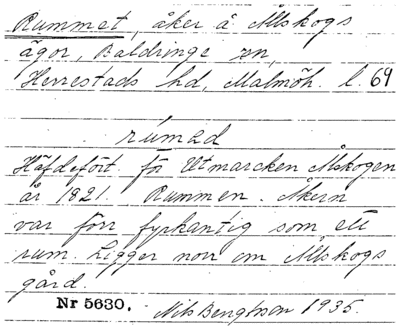 Rummet, åker å Ålskogs
ägor, Baldringe sn,
Herrestads hd, Malmöh. l. 69
rúməd
Häfdefört för Utmarcken Ålskogen
år 1821. Rummen. Åkern
var förr fyrkantig som ett
rum. Ligger norr om Ålskogs
gård.
Nr 5630. Nils Bengtsson 1935.